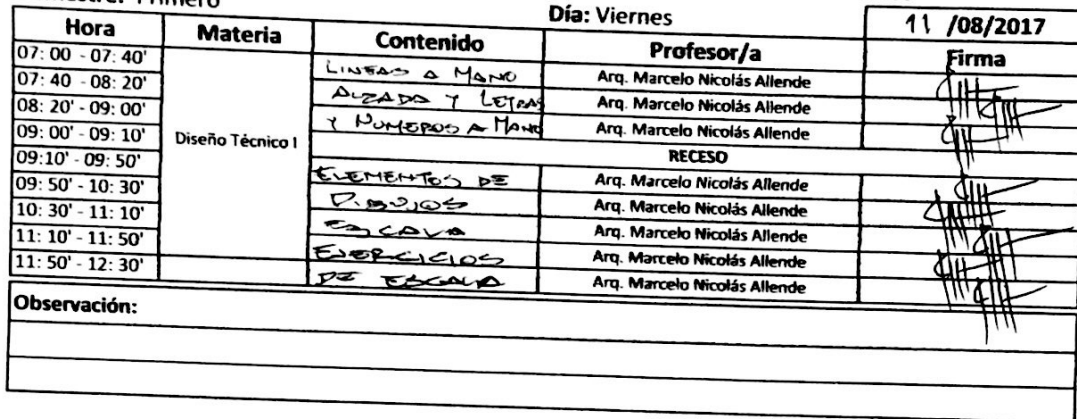 Primero
Día: Viernes
11 /08/2017
Hora Materia Contenido Profesor/a Firma
07: 00 - 07: 40' LINEAS A MANO Arq. Marcelo Nicolás Allende
07: 40 - 08: 20' ALZADA Y LETRAS Arq. Marcelo Nicolás Allende
08: 20' - 09: 00' Y NUMEROS A MANO Arq. Marcelo Nicolás Allende
09: 00' - 09: 10' Diseño Técnico I RECESO
09:10' - 09: 50' ELEMENTOS DE Arq. Marcelo Nicolás Allende
09: 50' - 10: 30' DIBUJOS Arq. Marcelo Nicolás Allende
10: 30' - 11: 10' ESCALA Arq. Marcelo Nicolás Allende
11: 10' - 11: 50' EJERCICIOS Arq. Marcelo Nicolás Allende
11: 50' - 12: 30' DE ESCALA Arq. Marcelo Nicolás Allende
Observación: